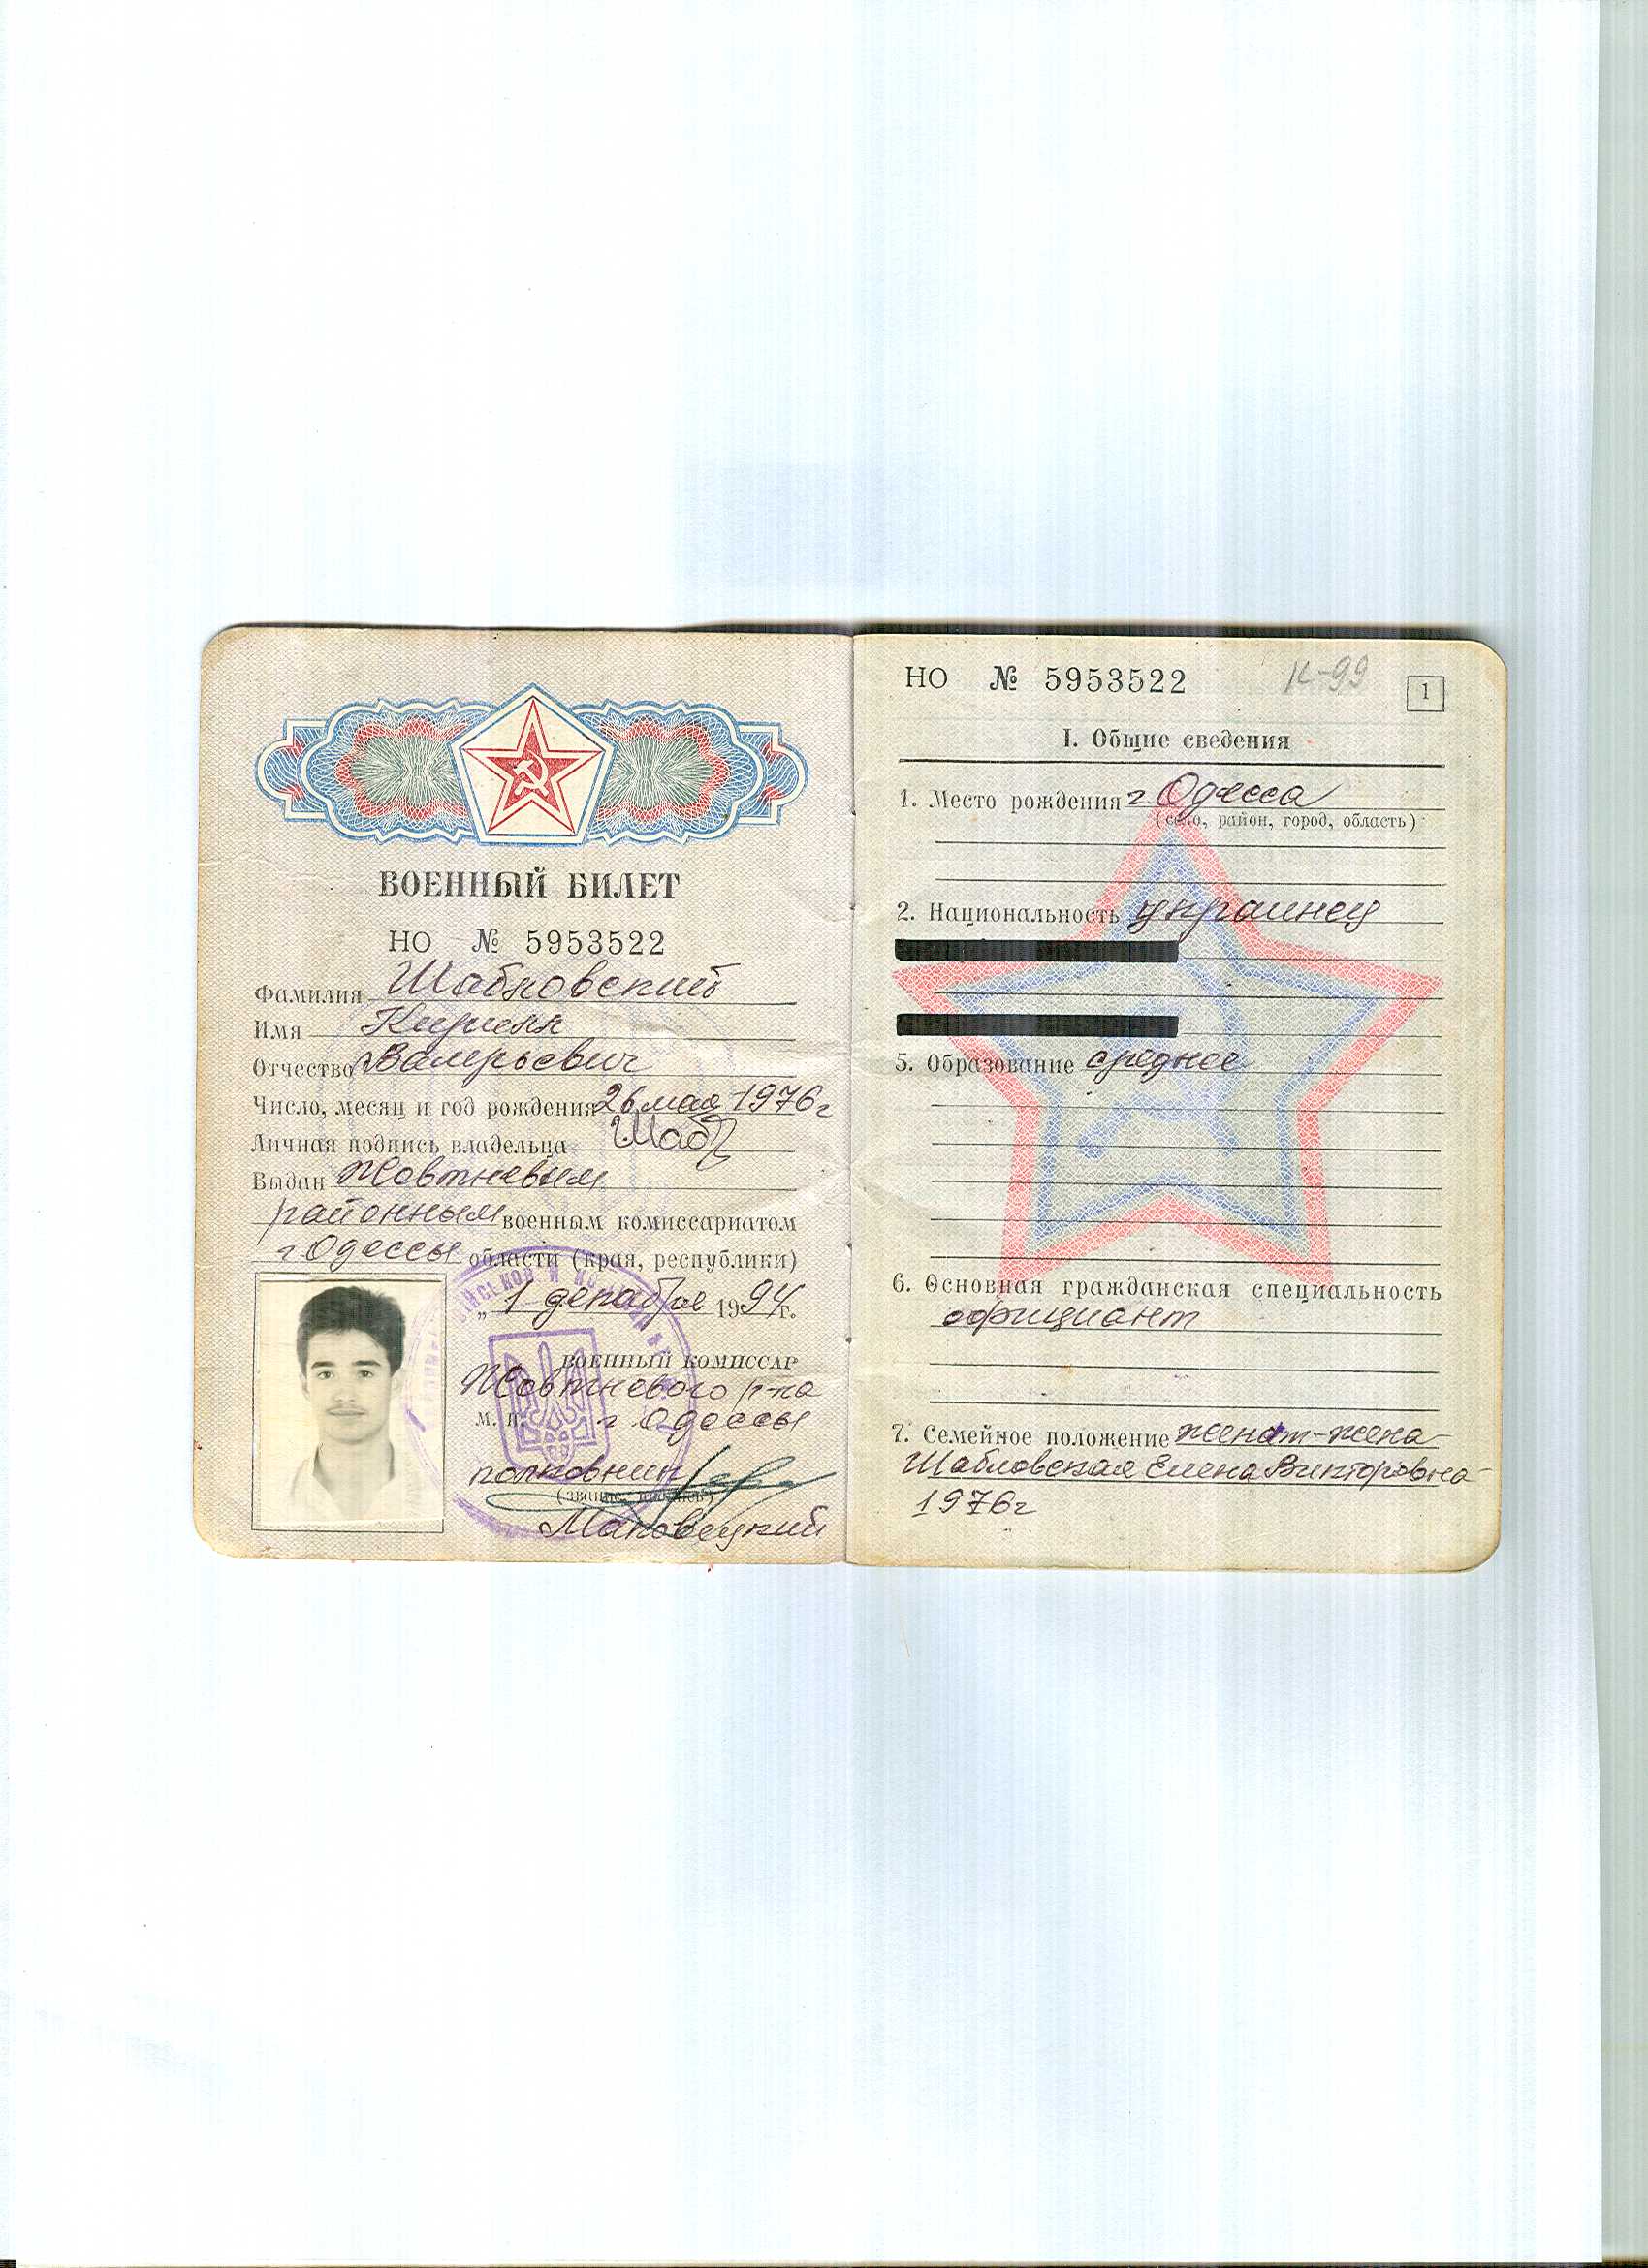 ВОЕННЫЙ БИЛЕТ
НО № 5953522
Фамилия Шабловский
Имя Кирилл
Отчество Валерьевич
Число, месяц и год рождения 26 мая 1976г
Личная подпись владельца Шаб
Выдан Жовтневым
районным военным комиссариатом
г. Одессы области (края, республики)
„ 1 декабря 1994г.
ВОЕННЫЙ КОМИССАР
Жовтневого р-на
М. П. г. Одессы
полковник
(звание, подпись)
Маковецкий
НО № 5953522 К-99 1
I. Общие сведения
1. Место рождения г Одесса
(село, район, город, область)
2. Национальность украинец
5. Образование среднее
6. Основная гражданская специальность
официант
7. Семейное положение женат-жена
Шабловская Елена Викторовна
1976г